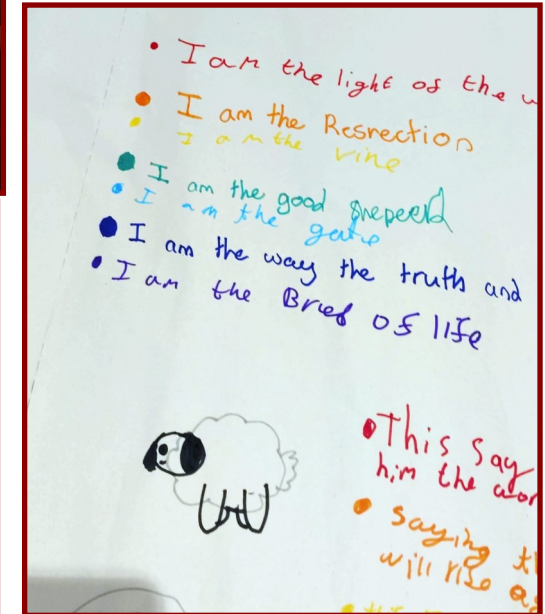 I am the light of the
I am the Resrection
I am the vine
I am the good shepeerd
I am the gate
I am the way the truth and
I am the Bried of life
This say
him the
saying
will rise